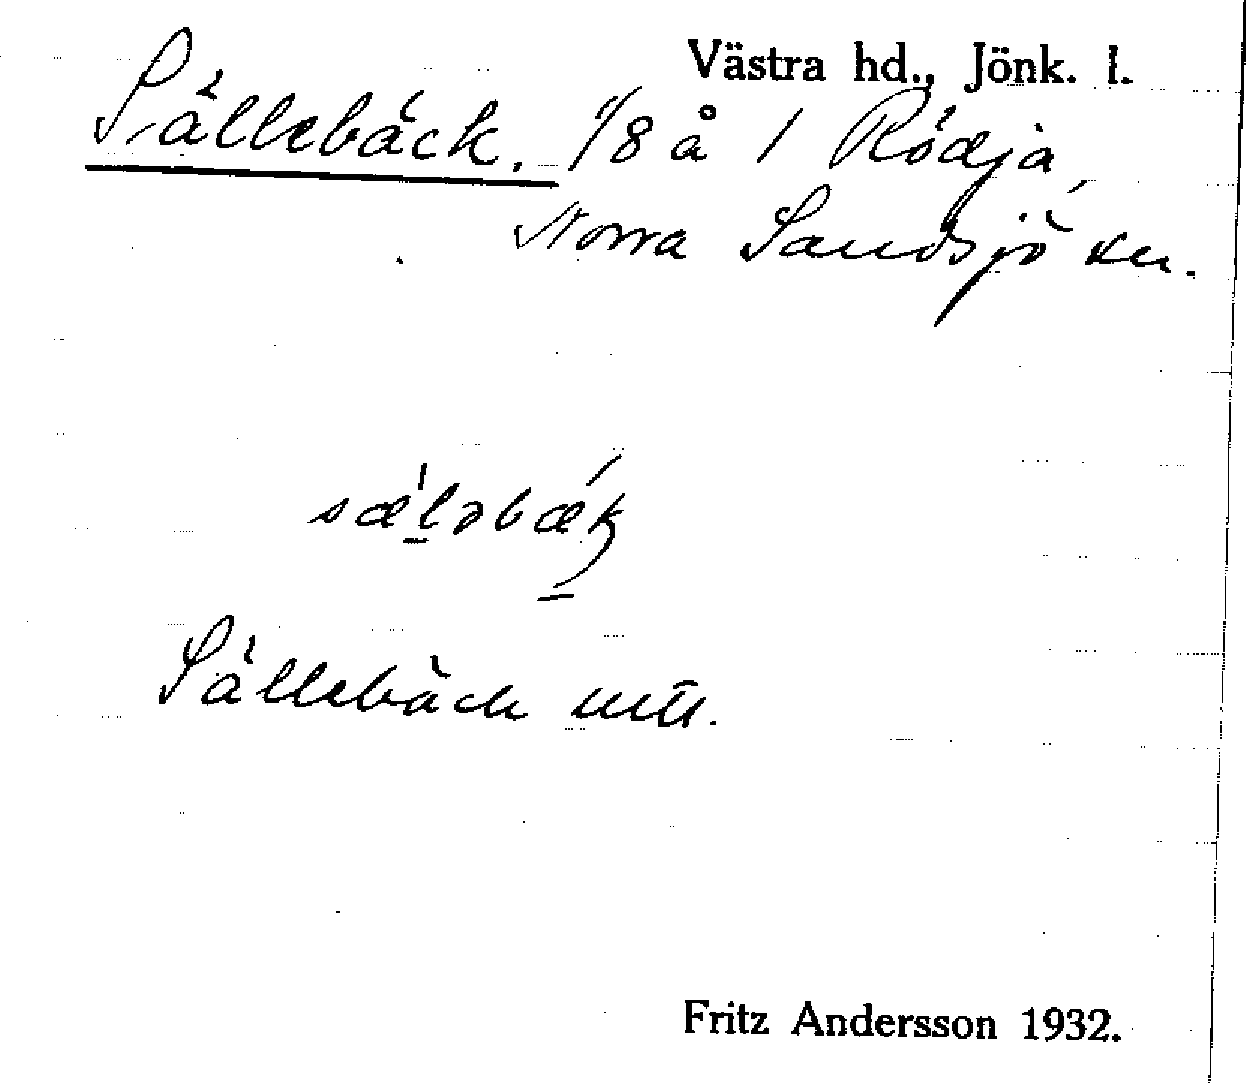 Västra hd., Jönk. l.
Sällebäck. 1/8 å 1 Rödja,
Norra Sandsjö sn.
sæ̍ləbǽk
Sällebäck mtl.
Fritz Andersson 1932.